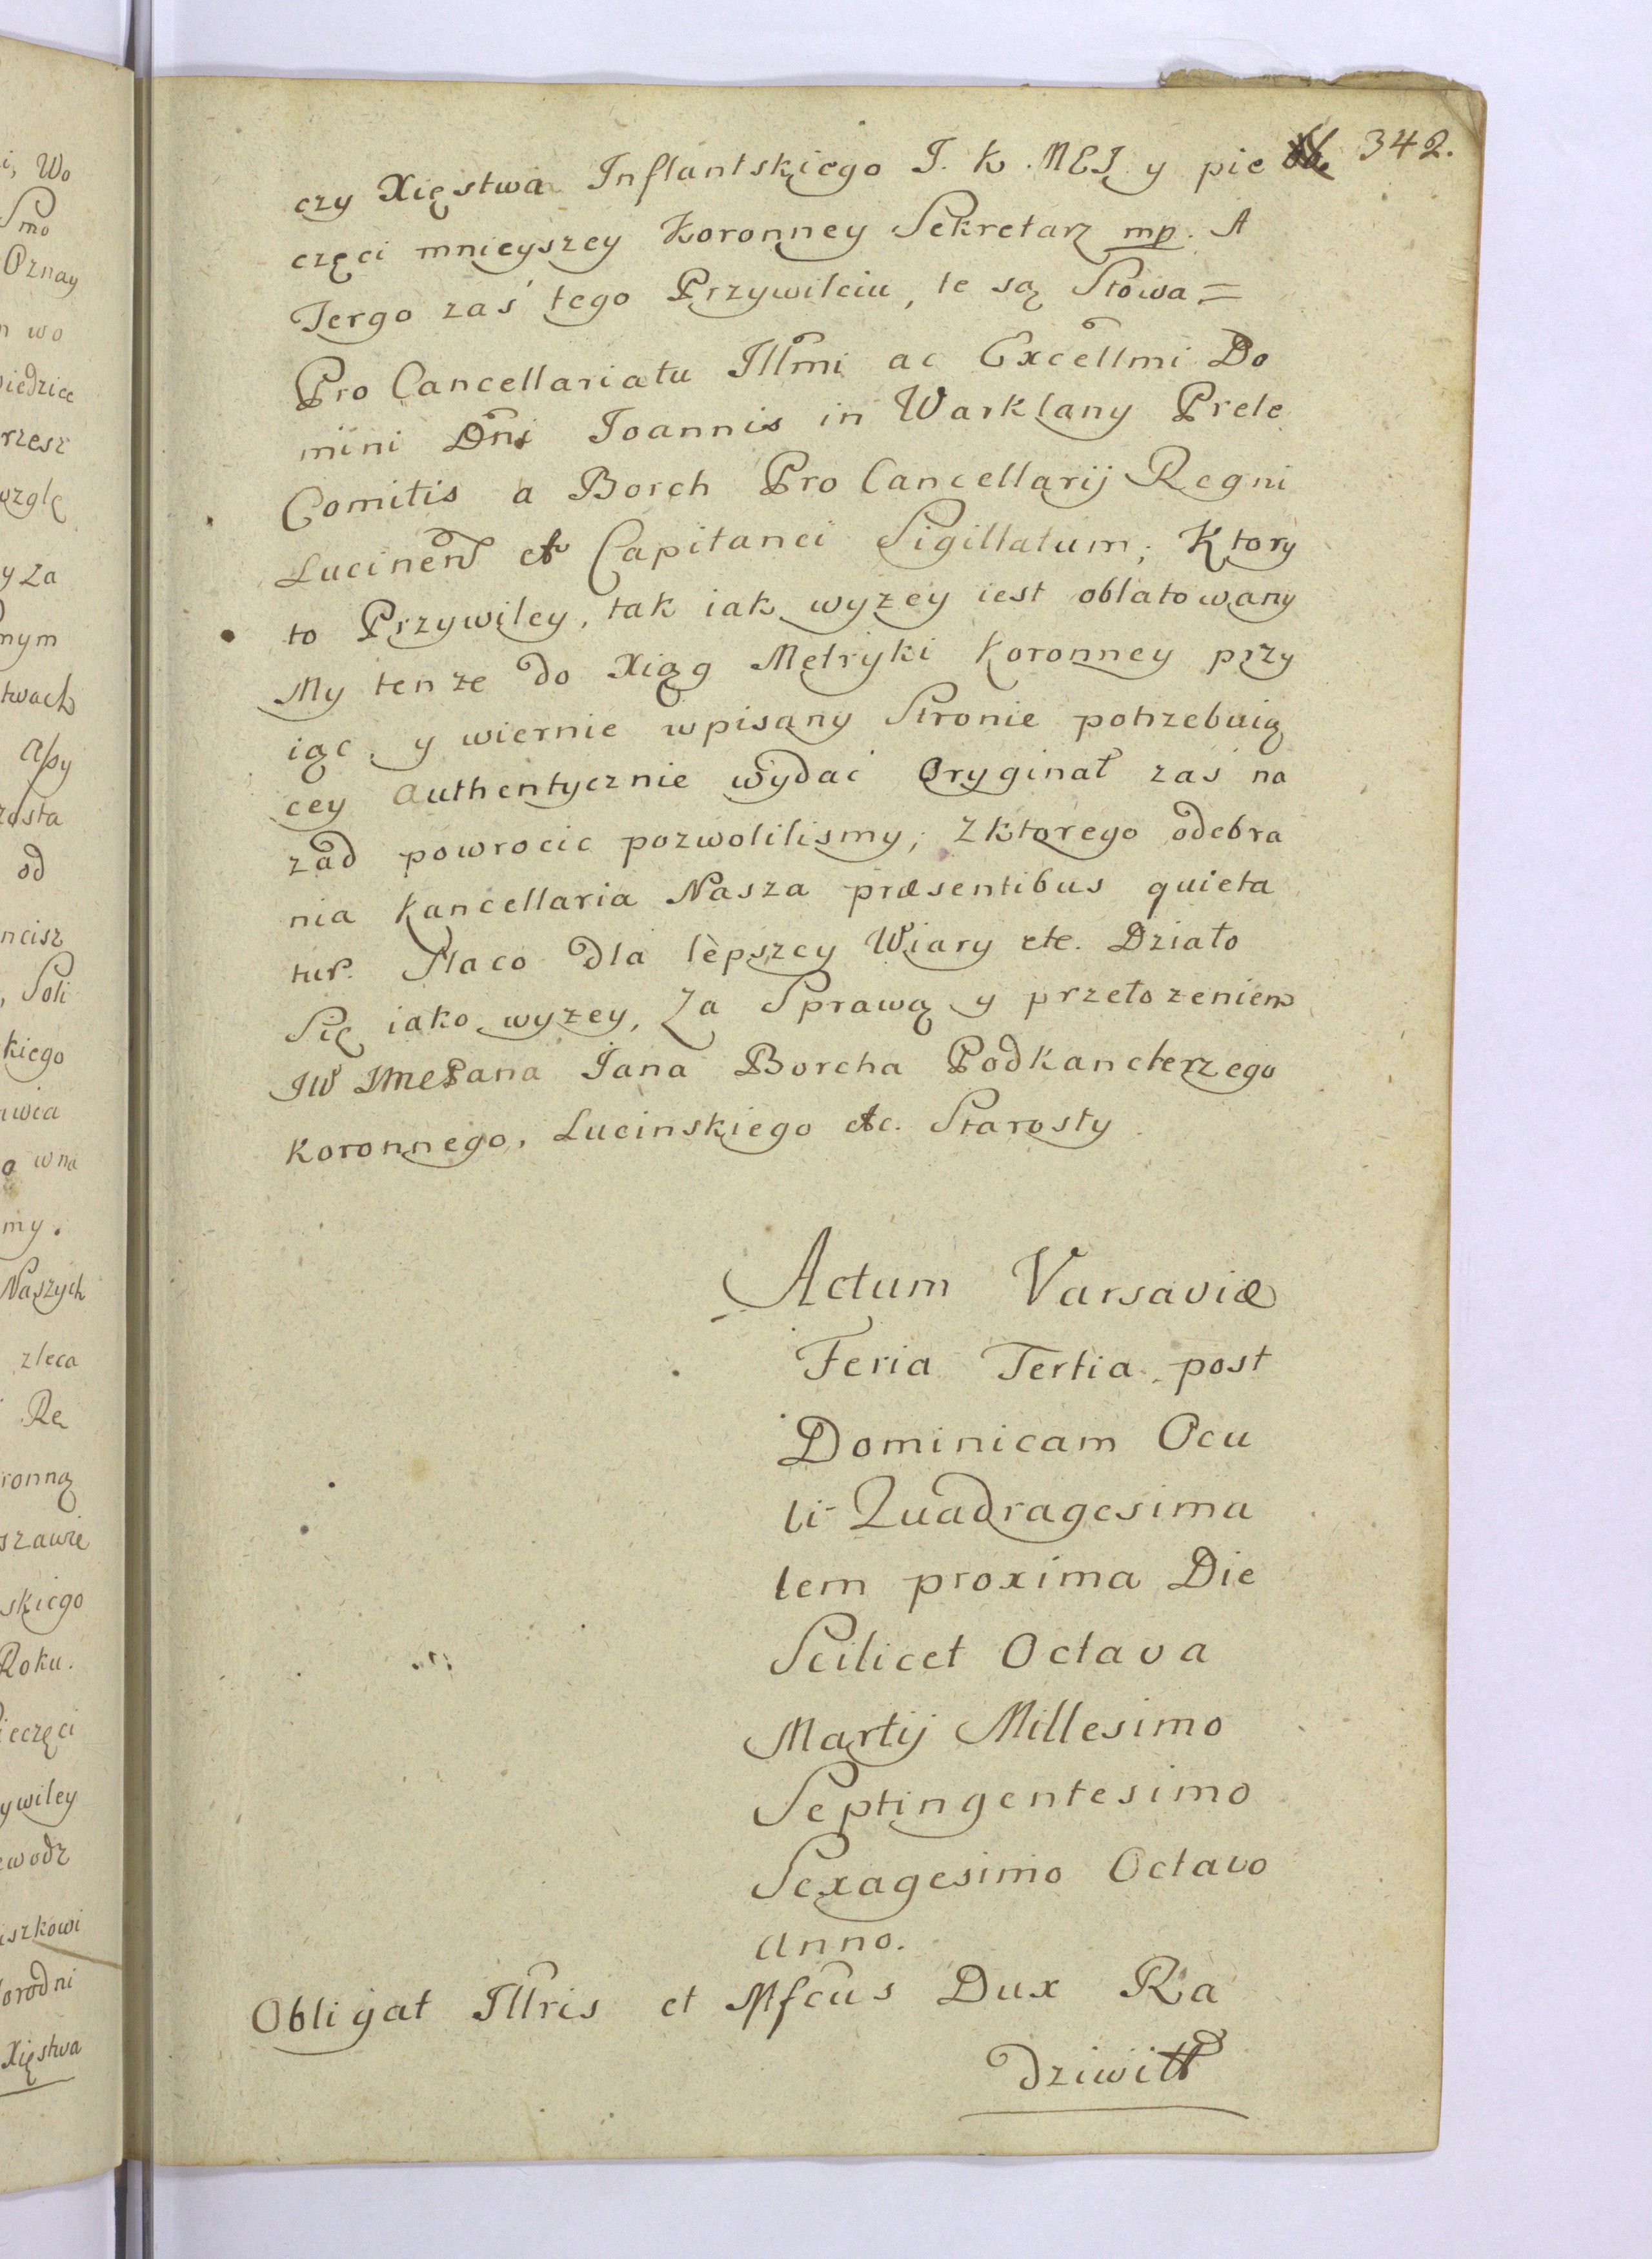 342.
czy Xięstwa Inflantskiego J. K. MCI y pie
częci mnieyszey Koronney Sekretarz mp. A
Tergo zaś tego Przywileiu, te są Słowa =
Pro Cancellariatu Illmi ac Excellmi Do
mini Dni Joannis in Warklany Prele
Comitis a Borch Pro Cancellarij Regni
Lucinen et Capitanei Sigillatum; Ktory
to Przywiley, tak iak wyzey iest oblatowany
My tenze do Xiąg Metryki Koronney przy
iąc, y wiernie wpisany Stronie potrzebuią
cey Authentycznie wydać Oryginał zaś na
zad powrocic pozwolilismy; z ktorego odebra
nia Kancellaria Nasza præsentibus quieta
tur. Naco dla lepszey Wiary etc. Działo
Się iako wyzey, Za Sprawą y przełozeniem
JW JmcPana Jana Borcha Podkanclerzego
Koronnego, Lucinskiego etc. Starosty
Actum Varsaviæ
Feria Tertia post
Dominicam Ocu
li Quadragesima
lem proxima Die
Scilicet Octava
Martij Millesimo
Septingentesimo
Sexagesimo Octavo
Anno.
Obligat Illris et Mfcus Dux Ra
dziwiłł
i, Wo
Smo
Oznay
n wo
iedzice
rzesz
wzglę
y za
nym
twach
Assy
zosta
od
ncisz
, Soli
kiego
awia
o wna
my.
Naszych
zleca
Rę
ronną
szawie
skiego
Roku.
ieczęci
ywiley
ewodz
iszkowi
orodni
Xięstwa